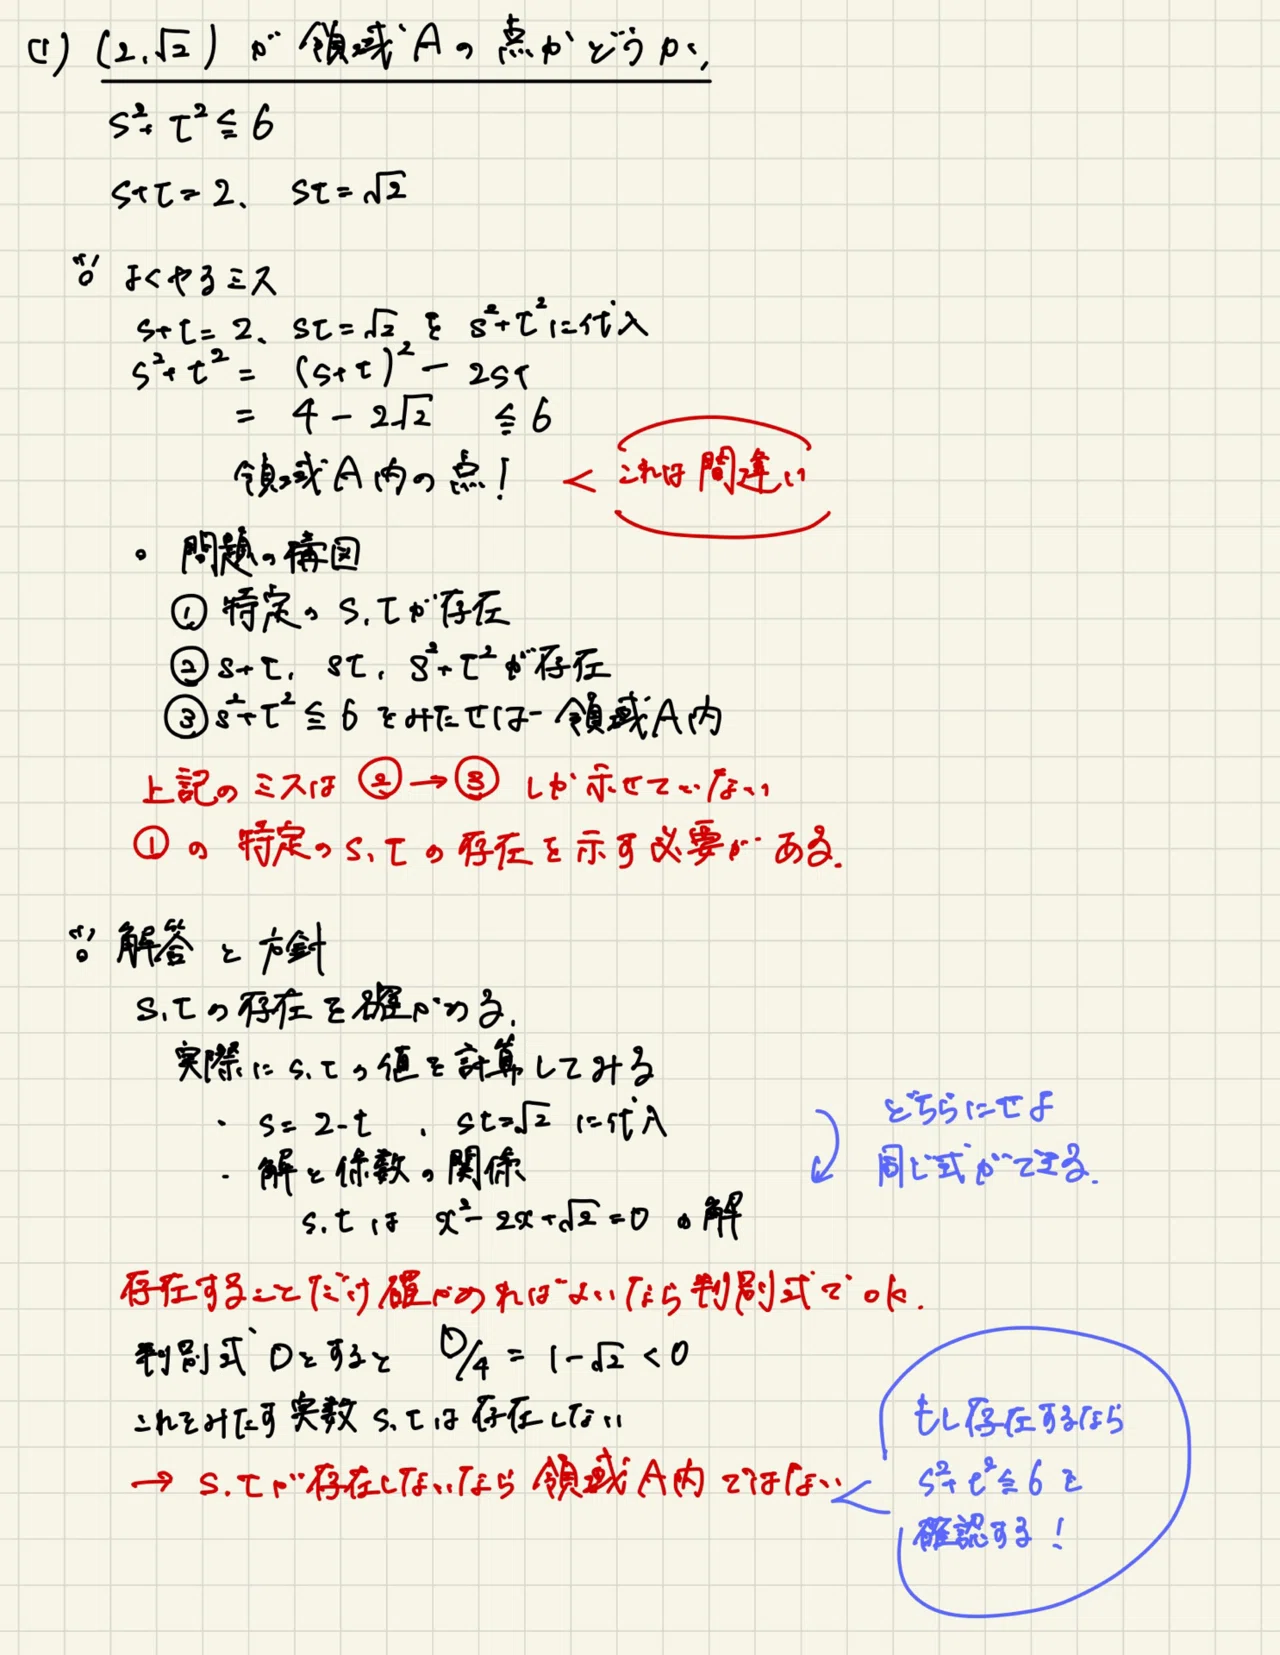 (1) (2,√2) が 領域Aの点かどうか、
s²+t²≦6
s+t=2、 st=√2
よくやるミス
s+t=2、st=√2 を s²+t²に代入
s²+t² = (s+t)² - 2st
= 4 - 2√2 ≦6
領域A内の点!
これは間違い
・ 問題の構図
① 特定の s,tが存在
② s+t, st, s²+t²が存在
③ s²+t²≦6 をみたせば 領域A内
上記のミスは ②→③ しか示せていない
①の 特定のs,tの存在を示す必要がある.
解答と方針
s,tの存在を確かめる.
実際に s,tの値を計算してみる
・ s=2-t , st=√2 に代入
・ 解と係数の関係
s,tは x²-2x+√2=0 の解
どちらにせよ
同じ式ができる.
存在することだけ確かめればよいなら判別式でok.
判別式Dとすると D/4 = 1-√2 <0
これをみたす実数 s,tは存在しない
→ s,tが存在しないなら領域A内ではない
もし存在するなら
s²+t²≦6を
確認する!